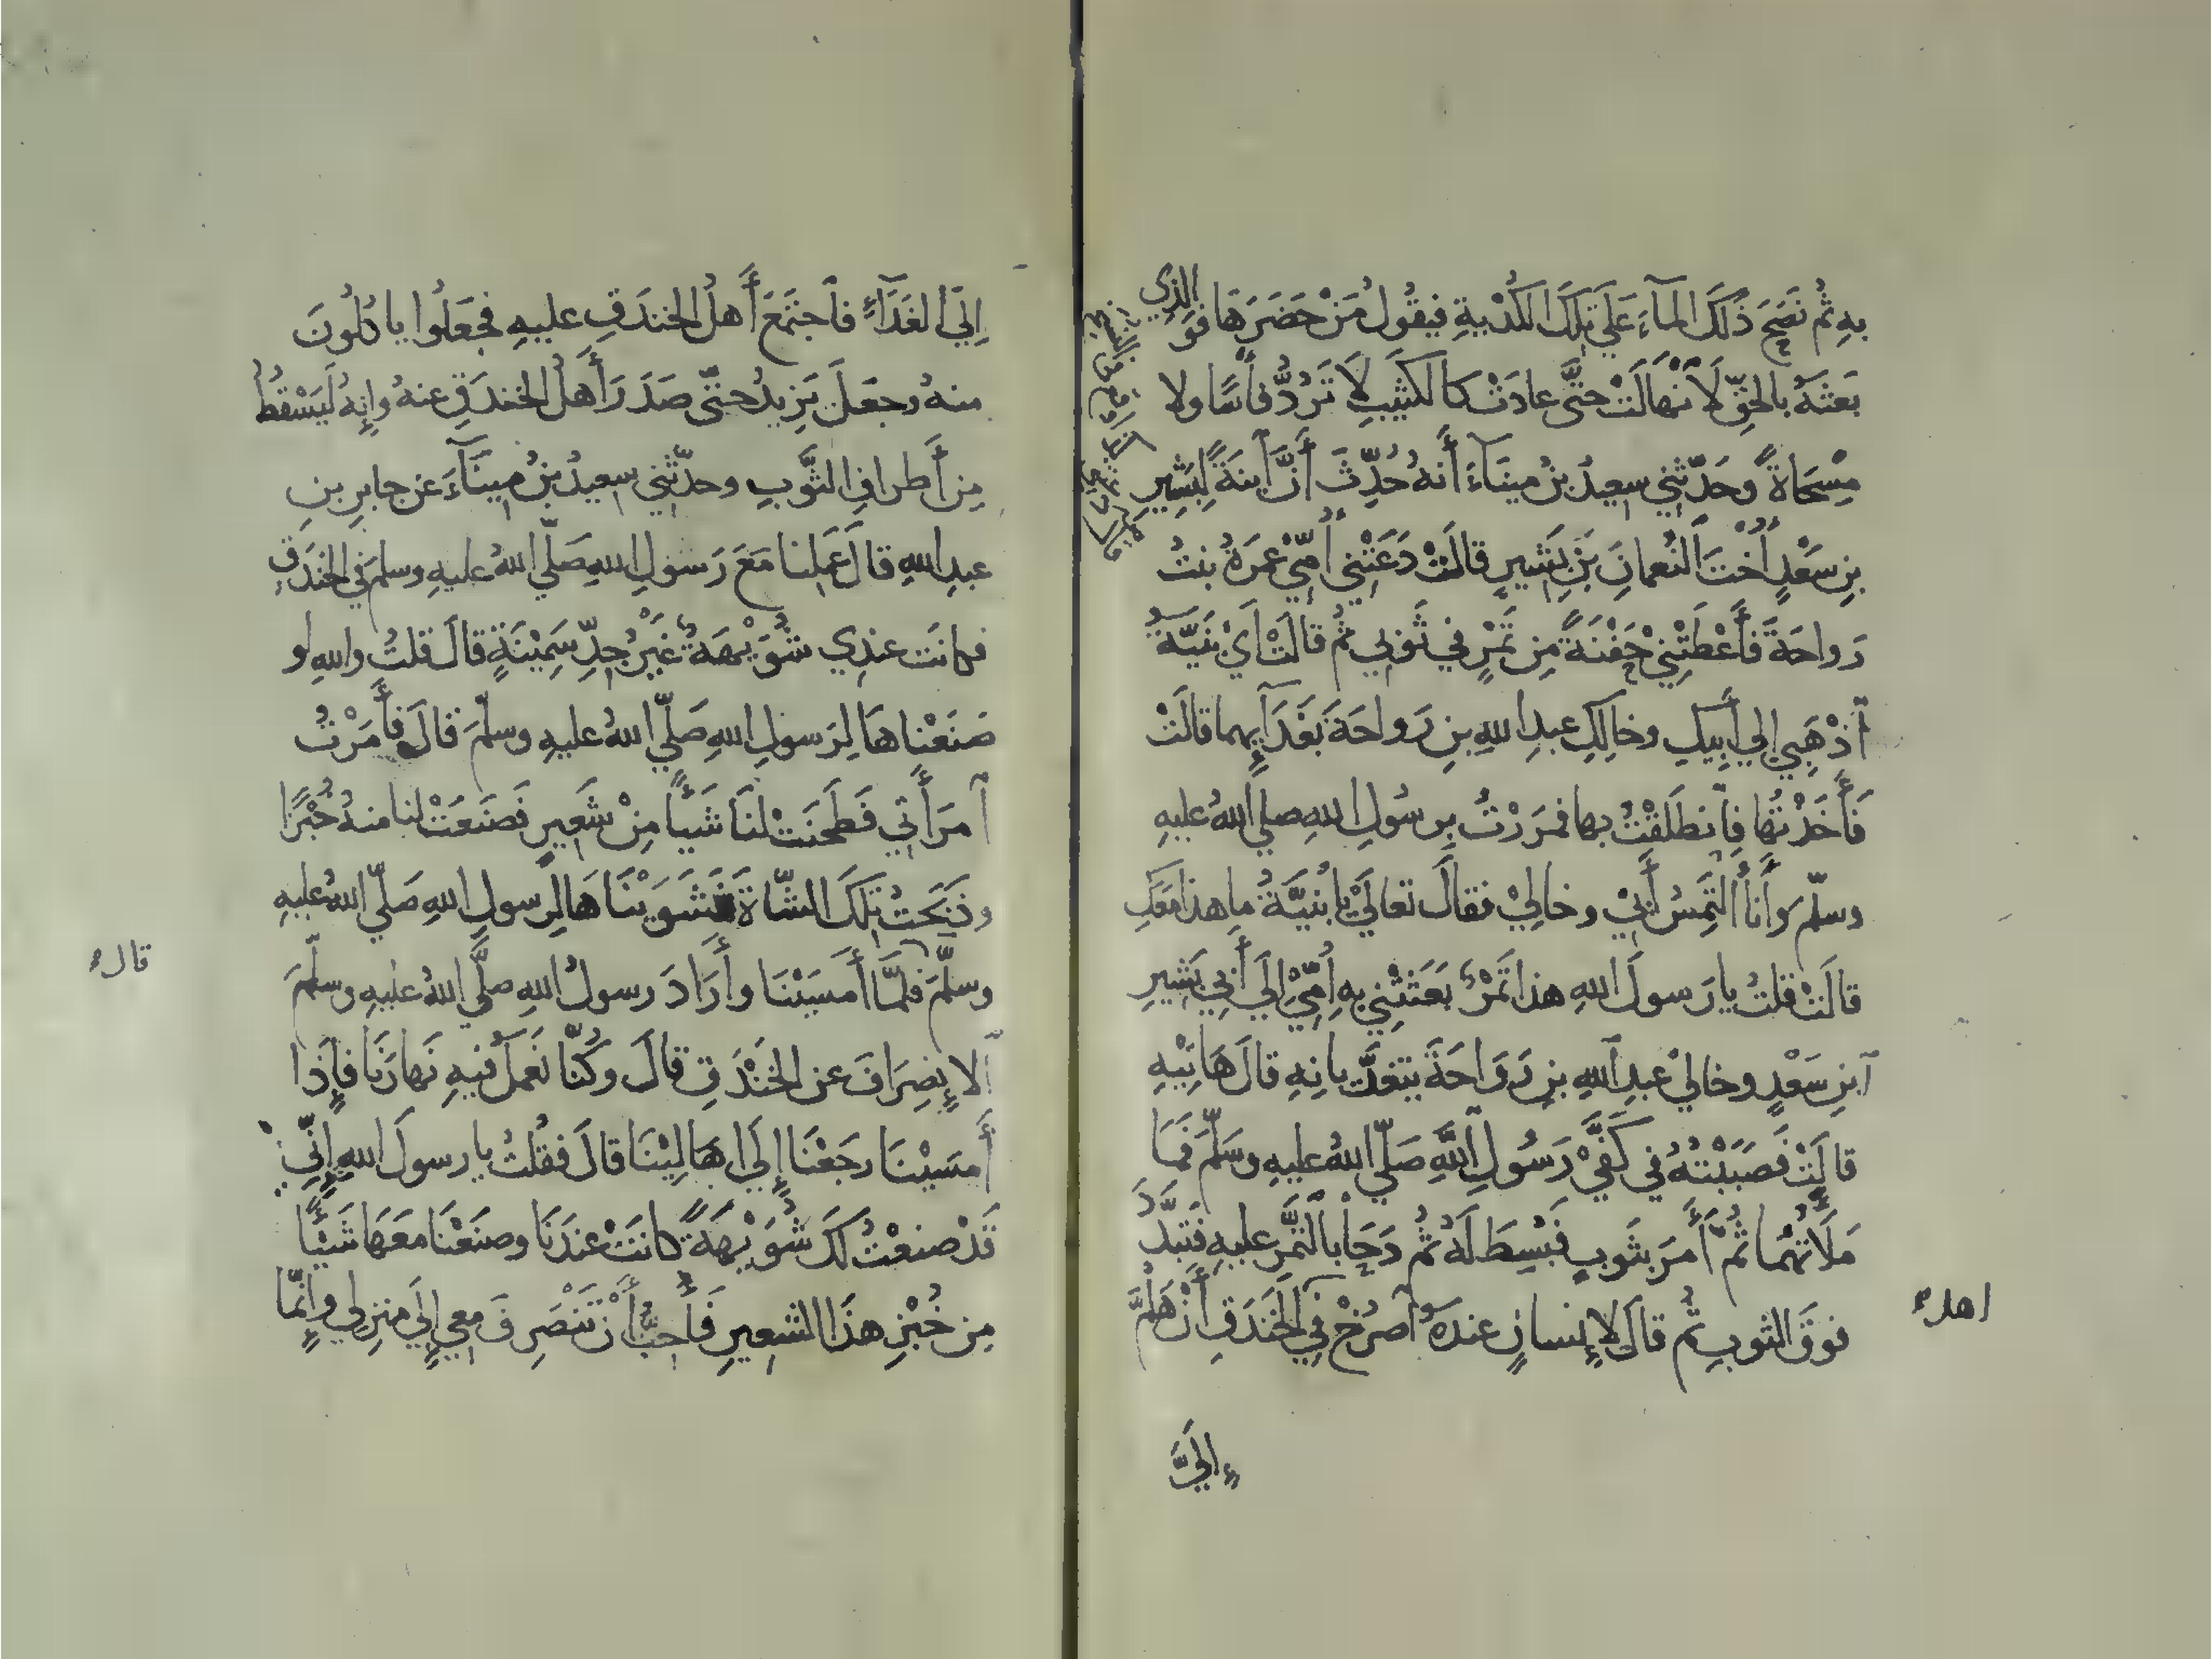 بِهِ ثُمَّ نَضَحَ ذَلِكَ المآءَ عَلَى تِلْكَ الكُدْيَةِ فيقُولُ مَنْ حَضَرَهَا فَوَ الَّذِي
بَعَثَهُ بالحَقِّ لَٱنْهَالَتْ حتَّى عادَتْ كالكَثِيبِ لَا تَرُدُّ فأسًا ولا
مِسْحَاةً وحَدَّثني سعيدُ بنُ مينَآءَ أَنهُ حُدِّثَ أَنَّ ٱبنةً لِبَشِيرِ
بنِ سَعْدٍ أُخْتَ ٱلنُّعمانِ بنِ بَشيرٍ قالَتْ دَعَتْني أُمِّي عَمرَةُ بنتُ
رَواحَةَ فَأَعْطَتْنِيْ حَفْنَةً مِن تَمْرٍ في ثَوبي ثُمَّ قالَتْ أَيْ بُنَيَّةُ
ٱذْهَبي إلي أَبِيكِ وخالِكِ عبدِ اللهِ بنِ رَواحَةَ بغَدَآئِهِما قالَتْ
فَأَخَذْتُها فٱنطَلَقْتُ بها فمَرَرْتُ بِرسُولِ اللهِ صلي اللهُ عليهِ
وسلّمَ وأَناَ أَلْتَمِسُ أَبِيْ وخالِيْ فقالَ تعالَيْ يا بُنَيَّةُ ما هذا مَعَكِ
قالَتْ قلتُ يا رَسولَ اللهِ هذا تَمْرٌ بَعَثَتْنِي بهِ أُمِّيْ إِلَي أَبي بَشِيرِ
ٱبنِ سَعْدٍ وخاليْ عبدِ اللهِ بنِ رَوَاحَةَ يتغدَّيانِهِ قالَ هَاتِيْهِ
قالَتْ فَصَبَبْتُهُ في كَفَّيْ رَسُولِ ٱللَّهِ صَلّي اللهُ عليهِ وسَلَّمَ فَمَا
مَلَأَتْهُما ثُمَّ أَمَرَ بثَوبٍ فَبُسِطَ لَهُ ثُمَّ دَحَا بالتَّمْرِ عليهِ فَتَبَدَّدَ
فوقَ الثوبِ ثُمَّ قالَ لِإِنسانٍ عندَهُ ٱصْرُخْ في ٱلْخَندَقِ أَنْ هَلُمَّ
اهل
إِلَيَّ
إِلَى الغَدَآءِ فٱجتَمَعَ أَهلُ الخندَقِ عليهِ فجَعَلُوا ياكُلُونَ
منهُ وجعَلَ يَزِيدُ حتّى صَدَرَ أَهلُ الخندَقِ عنهُ وإِنهُ لَيَسْقُطُ
مِن أَطرافِ الثَّوبِ وحدَّثني سعيدُ بنُ مِينَآءَ عن جابرِ بنِ
عبدِ اللهِ قالَ عَمِلنا مَعَ رَسُولِ اللهِ صَلّي اللهُ عليهِ وسلمَ في الخندَقِ
فكانَت عندِي شُوَيْهَةٌ غَيْرُ جِدِّ سَمِيْنَةٍ قالَ قلتُ واللهِ لو
صَنَعْناهَا لِرَسولِ اللهِ صَلّي اللهُ عليهِ وسلّمَ قالَ فأَمَرْتُ
ٱمرَأَتي فَطَحَنَتْ لَنَا شَيأً مِنْ شَعِيرٍ فَصَنَعَتْ لنا منهُ خُبْزًا
وذَبَحَتْ تِلْكَ الشّاةَ فَشَوَيْنَاهَا لِرسولِ اللهِ صَلّي اللهُ عليهِ
وسلَّمَ فلمَّا أَمسَيْنَا وأَرَادَ رسولُ اللهِ صلَّي اللهُ عليهِ وسلّمَ
قال
ٱلإِنصِرَافَ عنِ الخَنْدَقِ قالَ وكُنّا نَعمَلُ فيهِ نَهارَنَا فإِذا
أَمسَيْنَا رجَعْنَا إِلَي اهَالِيْنَا قالَ فقُلتُ يا رسولَ اللهِ إِنِّيْ
قَدْ صنعْتُ لَكَ شُوَيْهَةً كانَتْ عندَنَا وصنَعْنَا معَهَا شَيْئًا
مِن خُبْزِ هذَا الشعِيرِ فَأُحِبُّ أَنْ تَنْصَرِفَ معِي إِلَي منزِلي وإِنّما